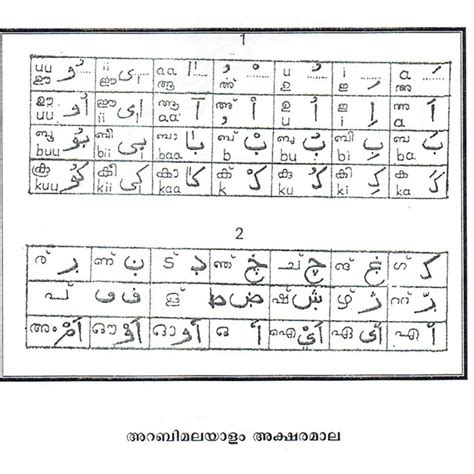 1
uu ഊ ُو ഈ ii اِى aa ആ َا അ് ْ u ഉ ُ i ഇ ِ a അ َ
ഊ uu اُو ഈ ii اِى ആ aa آ അ് اْ ഉ u اُ ഇ i اِ അ a اَ
ബൂ buu بُو ബീ bii بِى ബാ baa بَا ബ് b بْ ബു bu بُ ബി bi بِ ബ ba بَ
കൂ kuu كُو കീ kii كِى കാ kaa كَا ക് k كْ കു ku كُ കി ki كِ ക ka كَ
2
ണ് ട് ഞ് ച് چ ങ്
പ് ف ض ط ഷ് ഴ് റ്
അം ഔ ഓ ഒ ഐ ഏ എ
അറബിമലയാളം അക്ഷരമാല